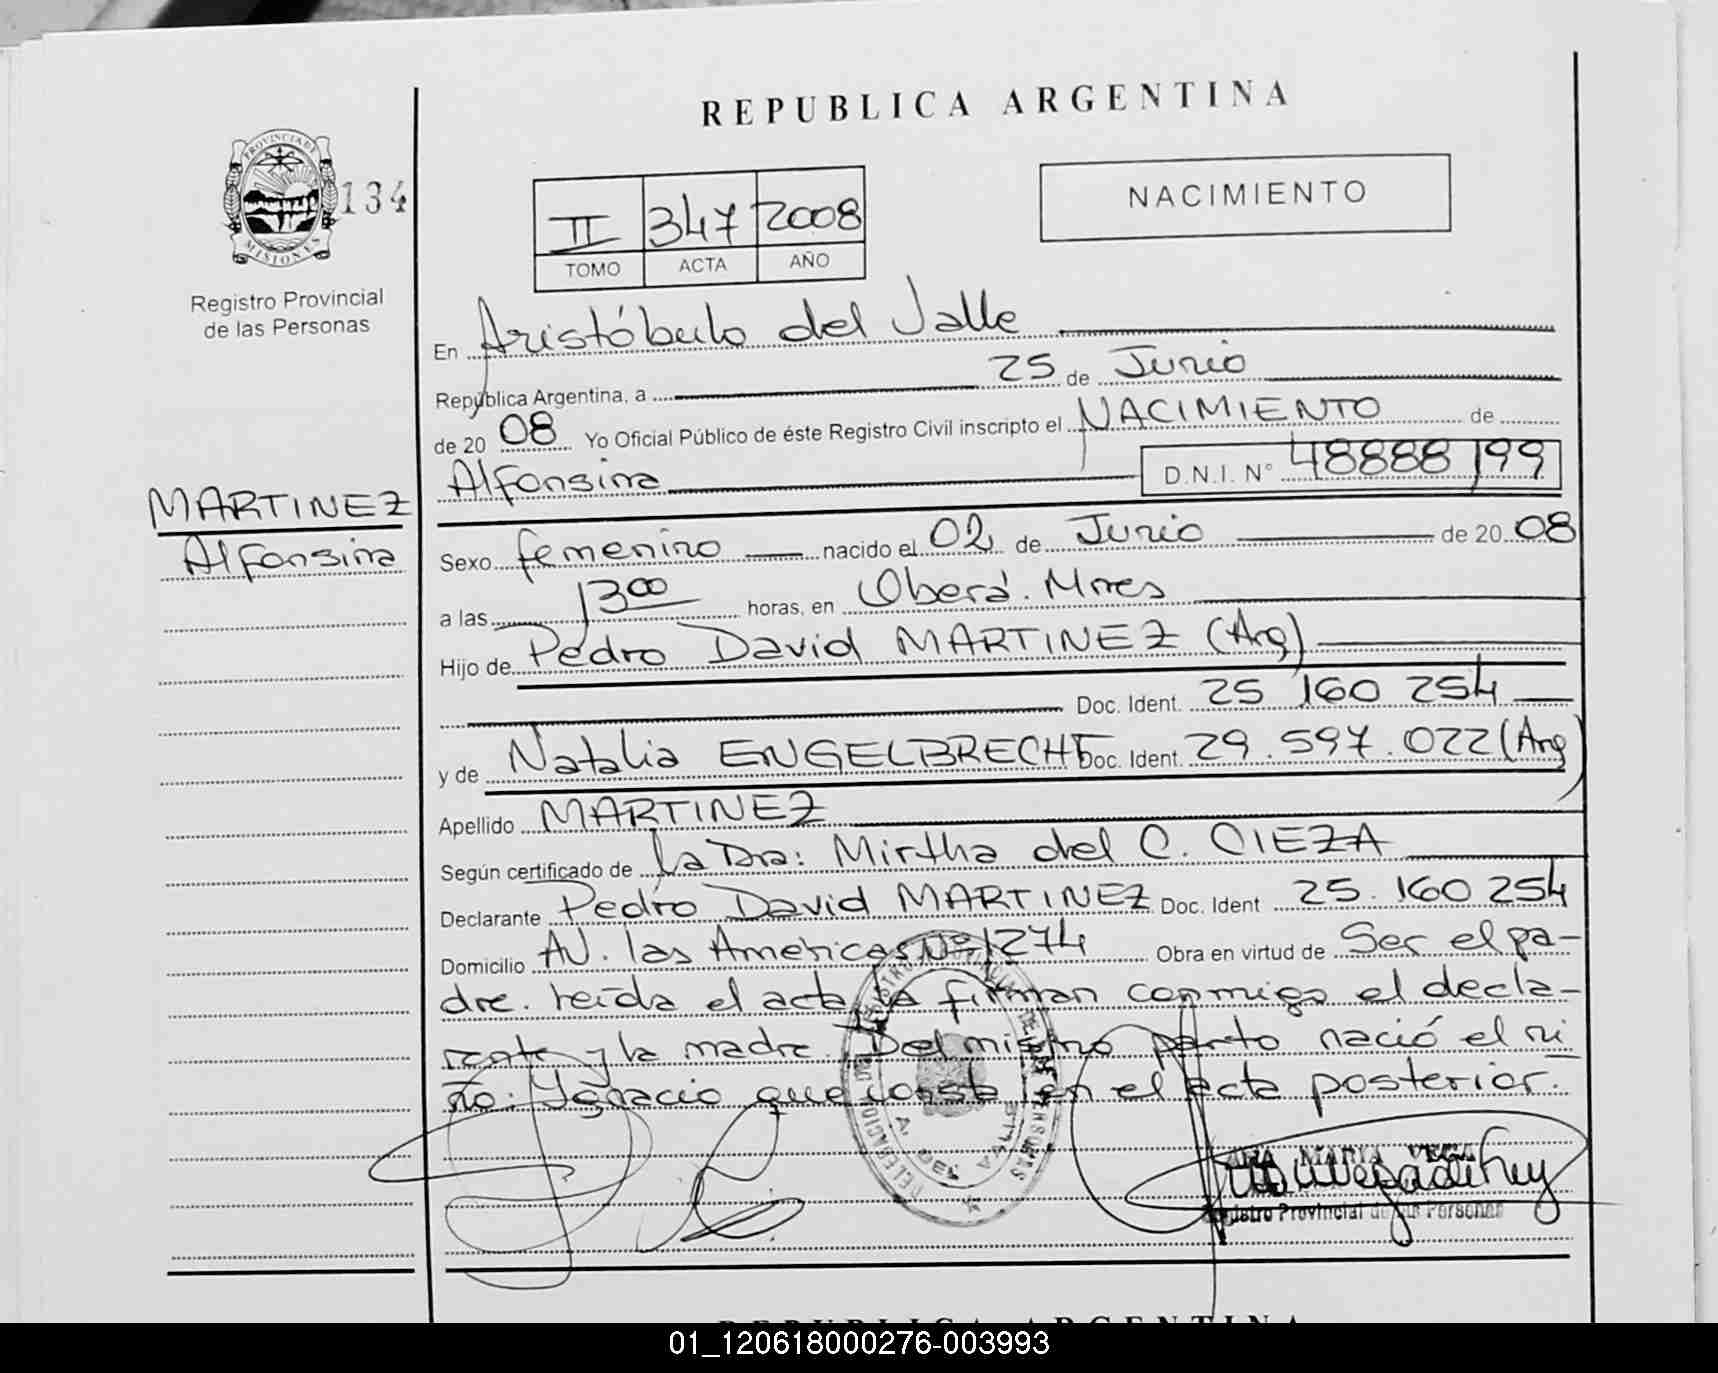 REPUBLICA ARGENTINA
PROVINCIA DE
MISIONES
134
Registro Provincial
de las Personas
II 347 2008
TOMO ACTA AÑO
NACIMIENTO
En Aristóbulo del Valle
República Argentina, a 25 de Junio
de 20 08 Yo Oficial Público de éste Registro Civil inscripto el NACIMIENTO de
Alfonsina D.N.I. N° 48888199
MARTINEZ
Alfonsina
Sexo femenino nacido el 02 de Junio de 20 08
a las 13 00 horas, en Oberá. Mnes
Hijo de Pedro David MARTINEZ (Arg)
Doc. Ident. 25 160 254
y de Natalia ENGELBRECHT Doc. Ident. 29.597.022 (Arg)
Apellido MARTINEZ
Según certificado de La Dra: Mirtha del C. CIEZA
Declarante Pedro David MARTINEZ Doc. Ident 25.160 254
Domicilio AV. las Americas Nº 1274 Obra en virtud de Ser el pa-
dre. leída el acta la firman conmigo el decla-
rante y la madre. Del mismo parto nació el ni
ño: Ignacio que consta en el acta posterior.
ANA MARIA VEGA
Registro Provincial de las Personas
REPUBLICA ARGENTINA
01_120618000276-003993